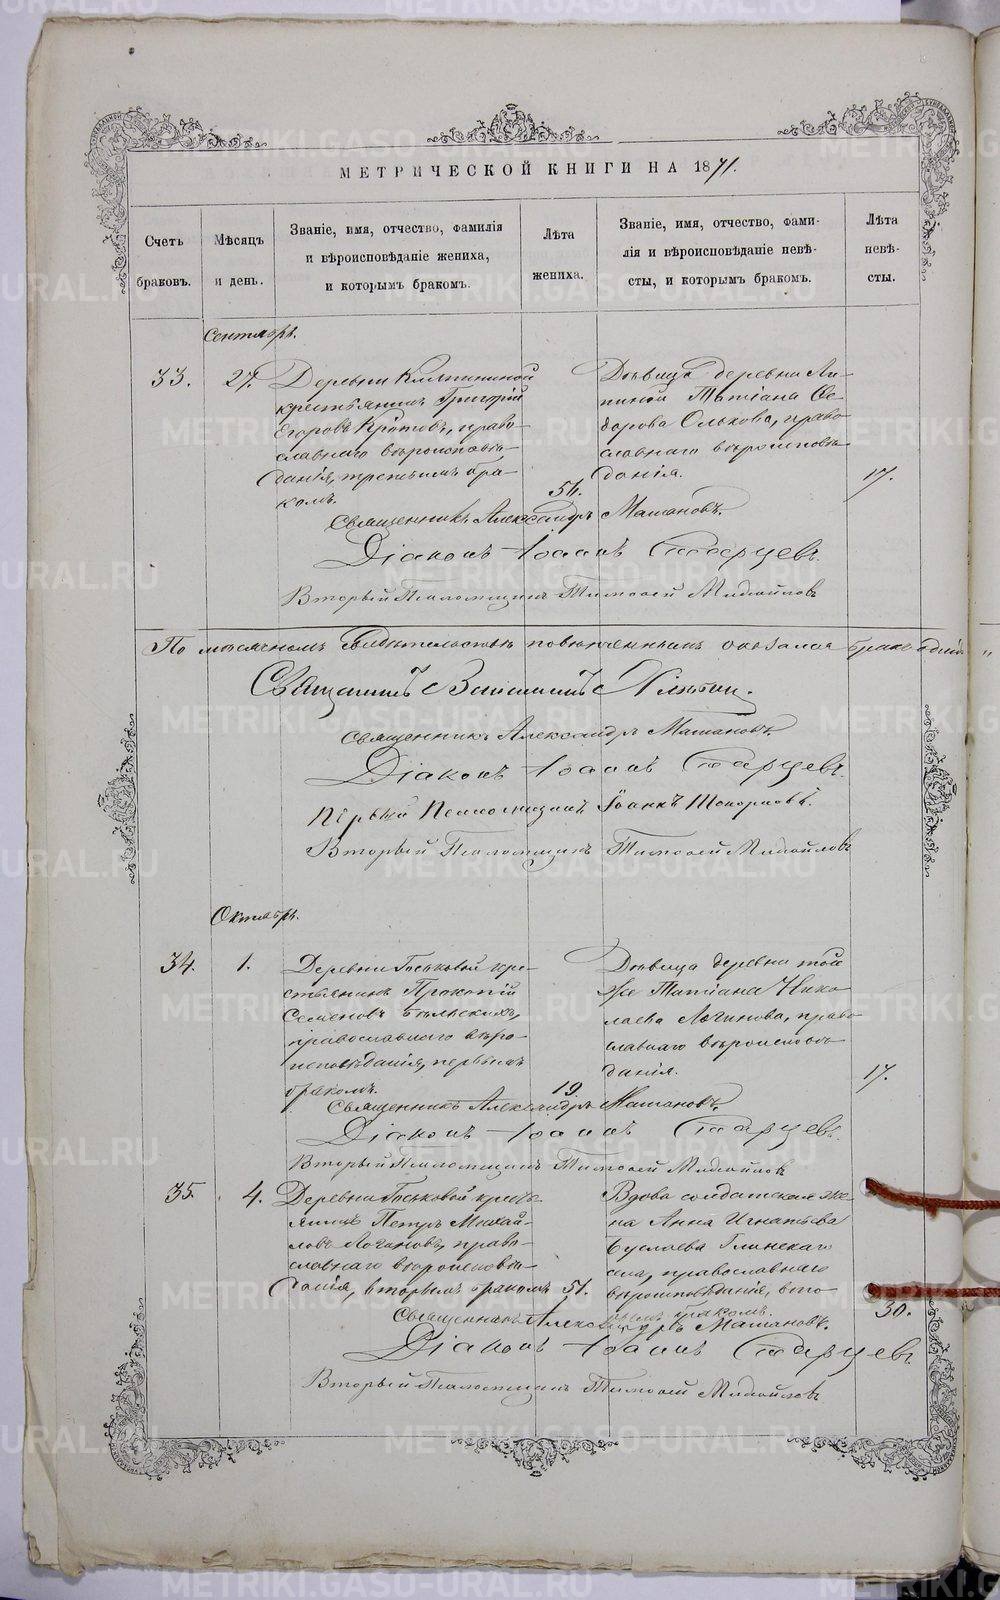 МЕТРИЧЕСКОЙ КНИГИ НА 1871.
Счетъ браковъ.
Мѣсяцъ и день.
Званіе, имя, отчество, фамилія
и вѣроисповѣданіе жениха,
и которымъ бракомъ.
Лѣта жениха.
Званіе, имя, отчество, фами-
лія и вѣроисповѣданіе невѣ-
сты, и которымъ бракомъ.
Лѣта невѣ-
сты.
Сентябрь.
33.
27.
Деревни
крестьянинъ Григорій
Егоровъ Кротовъ, право-
славнаго вѣроисповѣ-
данія, третьимъ бра-
комъ.
54.
Дѣвица деревни Ли-
пиной Татіана Ѳе-
дорова Олькова, право-
славнаго вѣроисповѣ-
данія.
17.
Священникъ Александръ Матановъ.
Діаконъ Іоаннъ Старцевъ.
Второй Псаломщикъ Тимоѳей Михайловъ
По мѣсячномъ свидѣтельствѣ повѣнчанныхъ оказался бракъ одинъ "
Священникъ
Священникъ Александръ Матановъ.
Діаконъ Іоаннъ Старцевъ.
Первый Псаломщикъ Іоаннъ Топорковъ.
Второй Псаломщикъ Тимоѳей Михайловъ
Октябрь.
34.
1.
Деревни Гоьковой кре-
стьянинъ Прокопій
Семеновъ Бѣльскихъ,
православнаго вѣро-
исповѣданія, первымъ
бракомъ.
19.
Дѣвица деревни той
же Татіана Нико-
лаева Логинова, право-
славнаго вѣроисповѣ-
данія.
17.
Священникъ Александръ Матановъ.
Діаконъ Іоаннъ Старцевъ.
Второй Псаломщикъ Тимоѳей Михайловъ
35.
4.
Деревни Гоьковой кресть-
янинъ Петръ Михай-
ловъ Логиновъ, право-
славнаго вѣроисповѣ-
данія, вторымъ бракомъ
51.
Вдова солдатская же-
на Анна Игнатьева
Суслаева Глинскаго
села, православнаго
вѣроисповѣданія, вто-
рымъ бракомъ.
30.
Священникъ Александръ Матановъ.
Діаконъ Іоаннъ Старцевъ
Второй Псаломщикъ Тимоѳей Михайловъ
METRIKI.GASO-URAL.RU